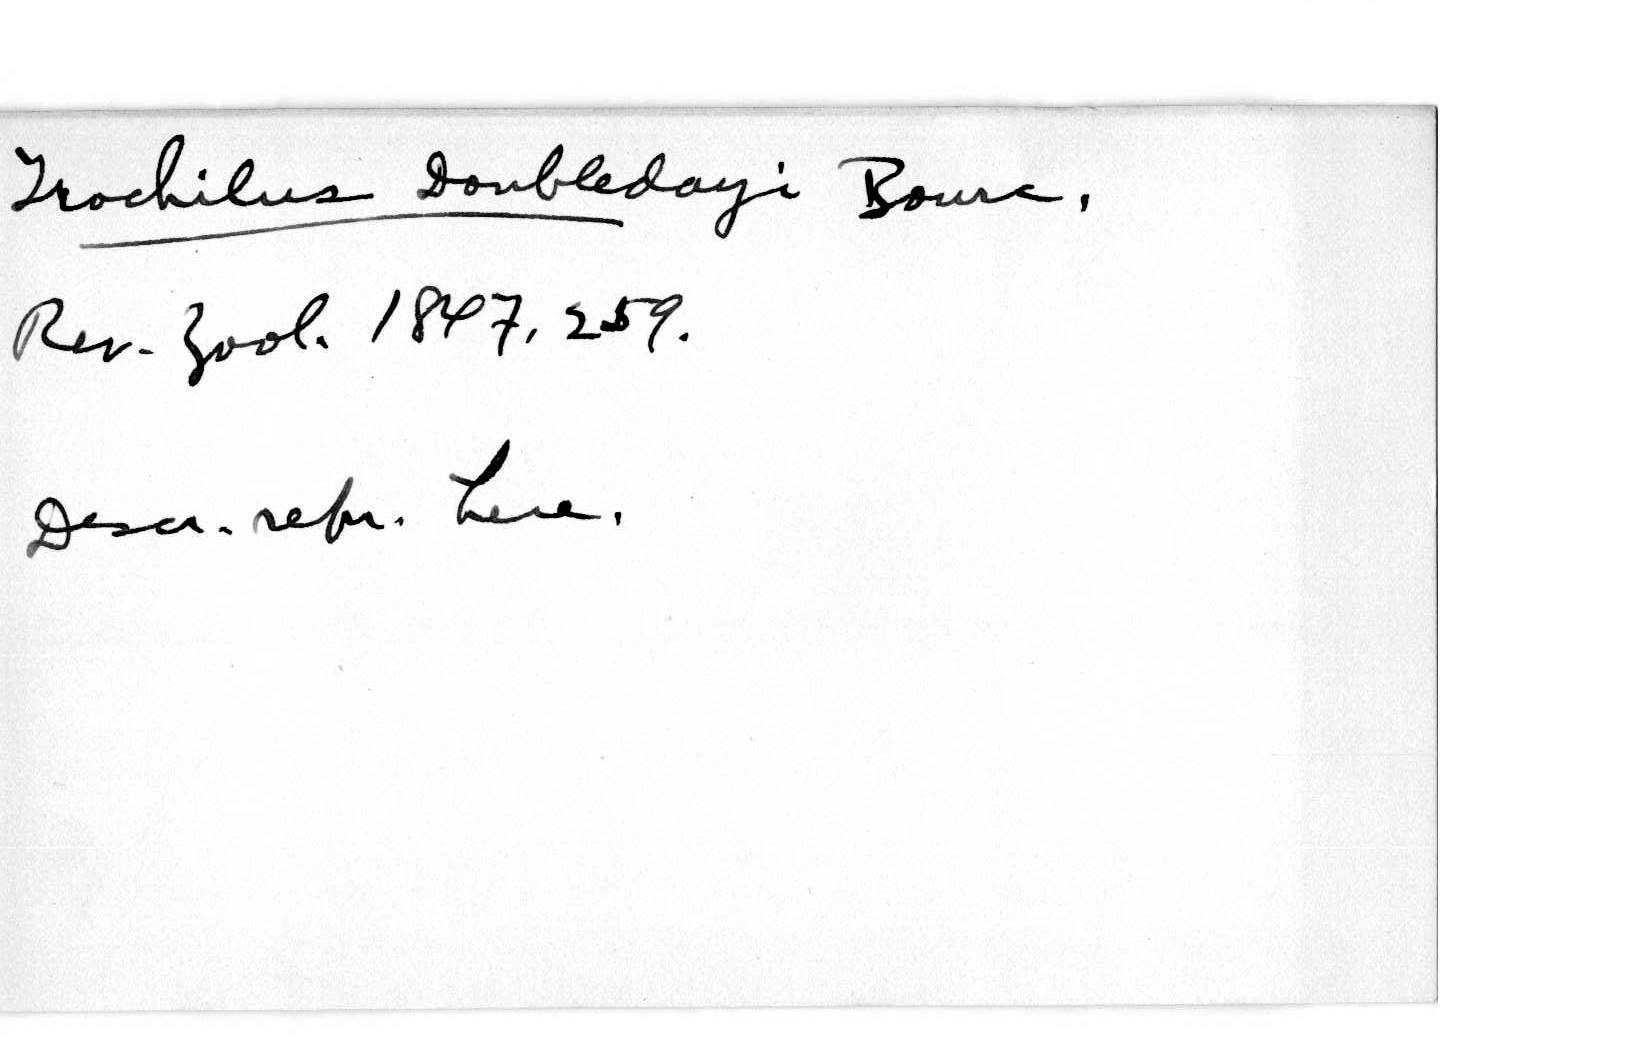 Trochilus Doubledayi Bourc.
Rev. Zool. 1847, 259.
Descr. repr. here.